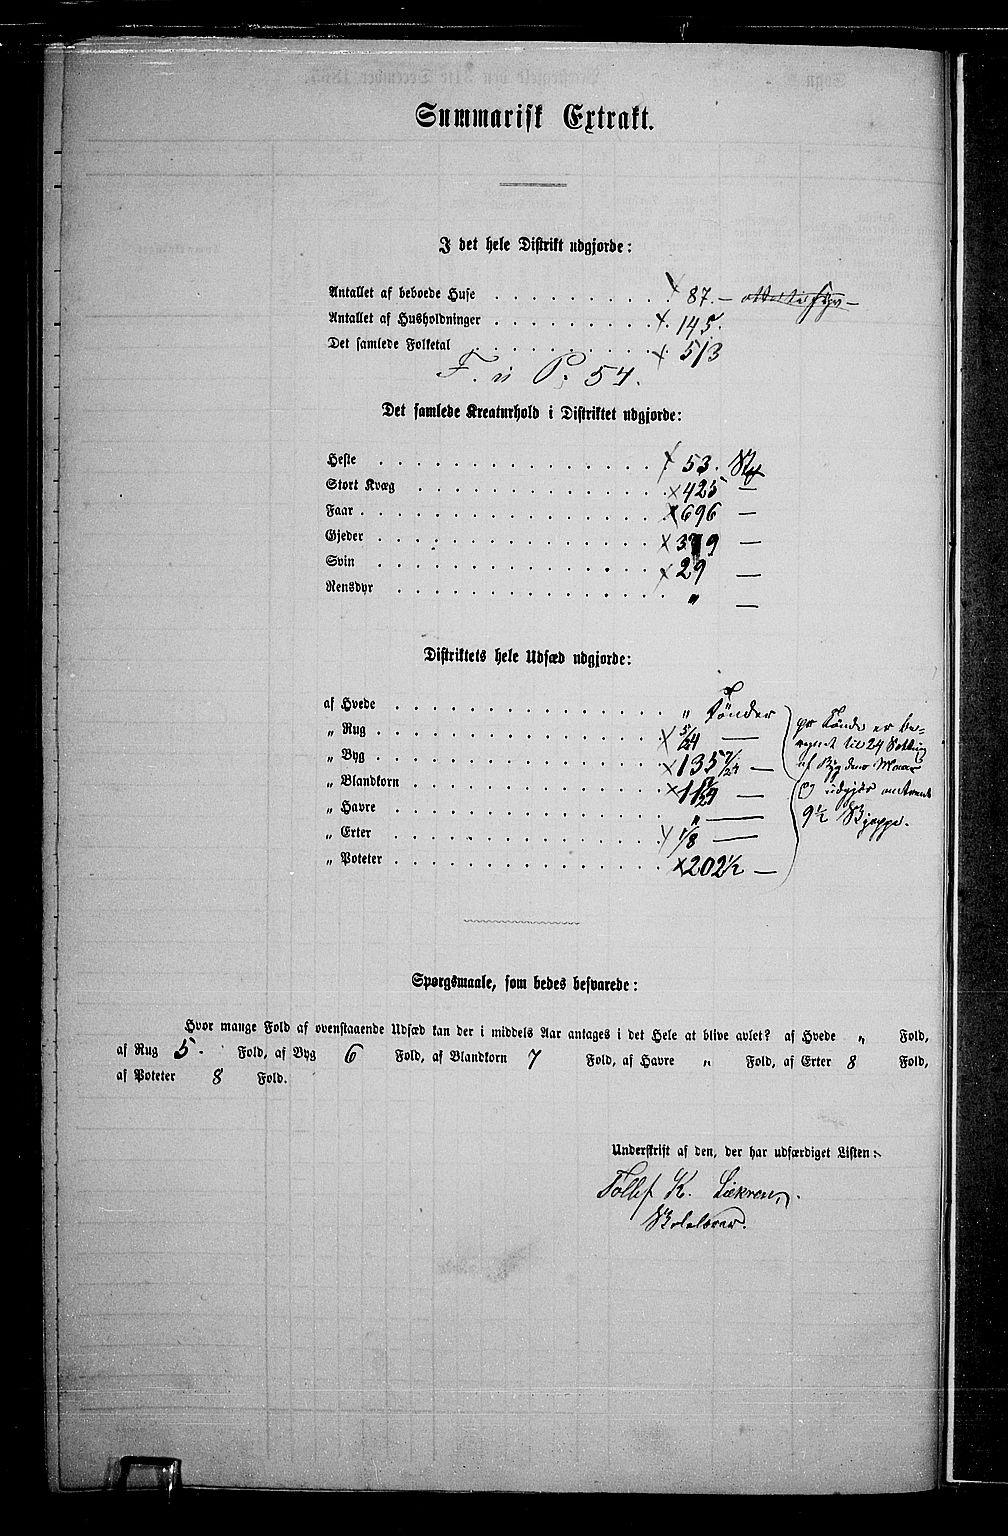 Summarisk Extrakt.
I det hele Distrikt udgjorde:
Antallet af beboede Huse . . . . . . . . . . × 87. —
Antallet af Husholdninger . . . . . . . . . . ×. 145.
Det samlede Folketal . . . . . . . . . . × 513
F. i P. 54.
Det samlede Kreaturhold i Distriktet udgjorde:
Heste . . . . . . . . . . × 53. Stk
Stort Kvæg . . . . . . . . . . × 425 —
Faar . . . . . . . . . . × 696 —
Gjeder . . . . . . . . . . × 379 —
Svin . . . . . . . . . . × 29 —
Rensdyr . . . . . . . . . . „ —
Distriktets hele Udsæd udgjorde:
af Hvede . . . . . . . . . . „ Tønder
„ Rug . . . . . . . . . . × 5/24 —
„ Byg . . . . . . . . . . × 135 7/24 —
„ Blandkorn . . . . . . . . . . × —
„ Havre . . . . . . . . . . „ —
„ Erter . . . . . . . . . . × 1/8 —
„ Poteter . . . . . . . . . . × 202 1/2 —
pr Tønde er be-
regnet til 24 Sotting
af Bygdens Maal
og udgjør omtrent
9 1/2 Skjeppe.
Spørgsmaale, som bedes besvarede:
Hvor mange Fold af ovenstaaende Udsæd kan der i middels Aar antages i det Hele at blive avlet? af Hvede „ Fold,
af Rug 5. Fold, af Byg 6 Fold, af Blandkorn 7 Fold, af Havre „ Fold, af Erter 8 Fold,
af Poteter 8 Fold.
Underskrift af den, der har udfærdiget Listen:
Tollef K.
Skolelærer.